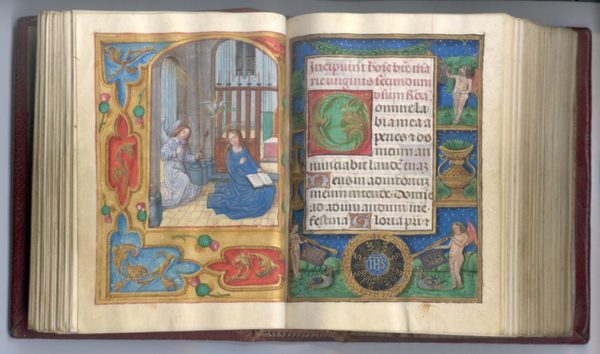 Incipiunt hore btē ma
rie virginis secundum
usum Roma.
Domine la
bia mea a
peries & os
meum an
nunciabit laudē tuaz
Deus in adiutoriuz
meum intende. Domie
ad adiuvandum me
festina Gloria pri &
IHS